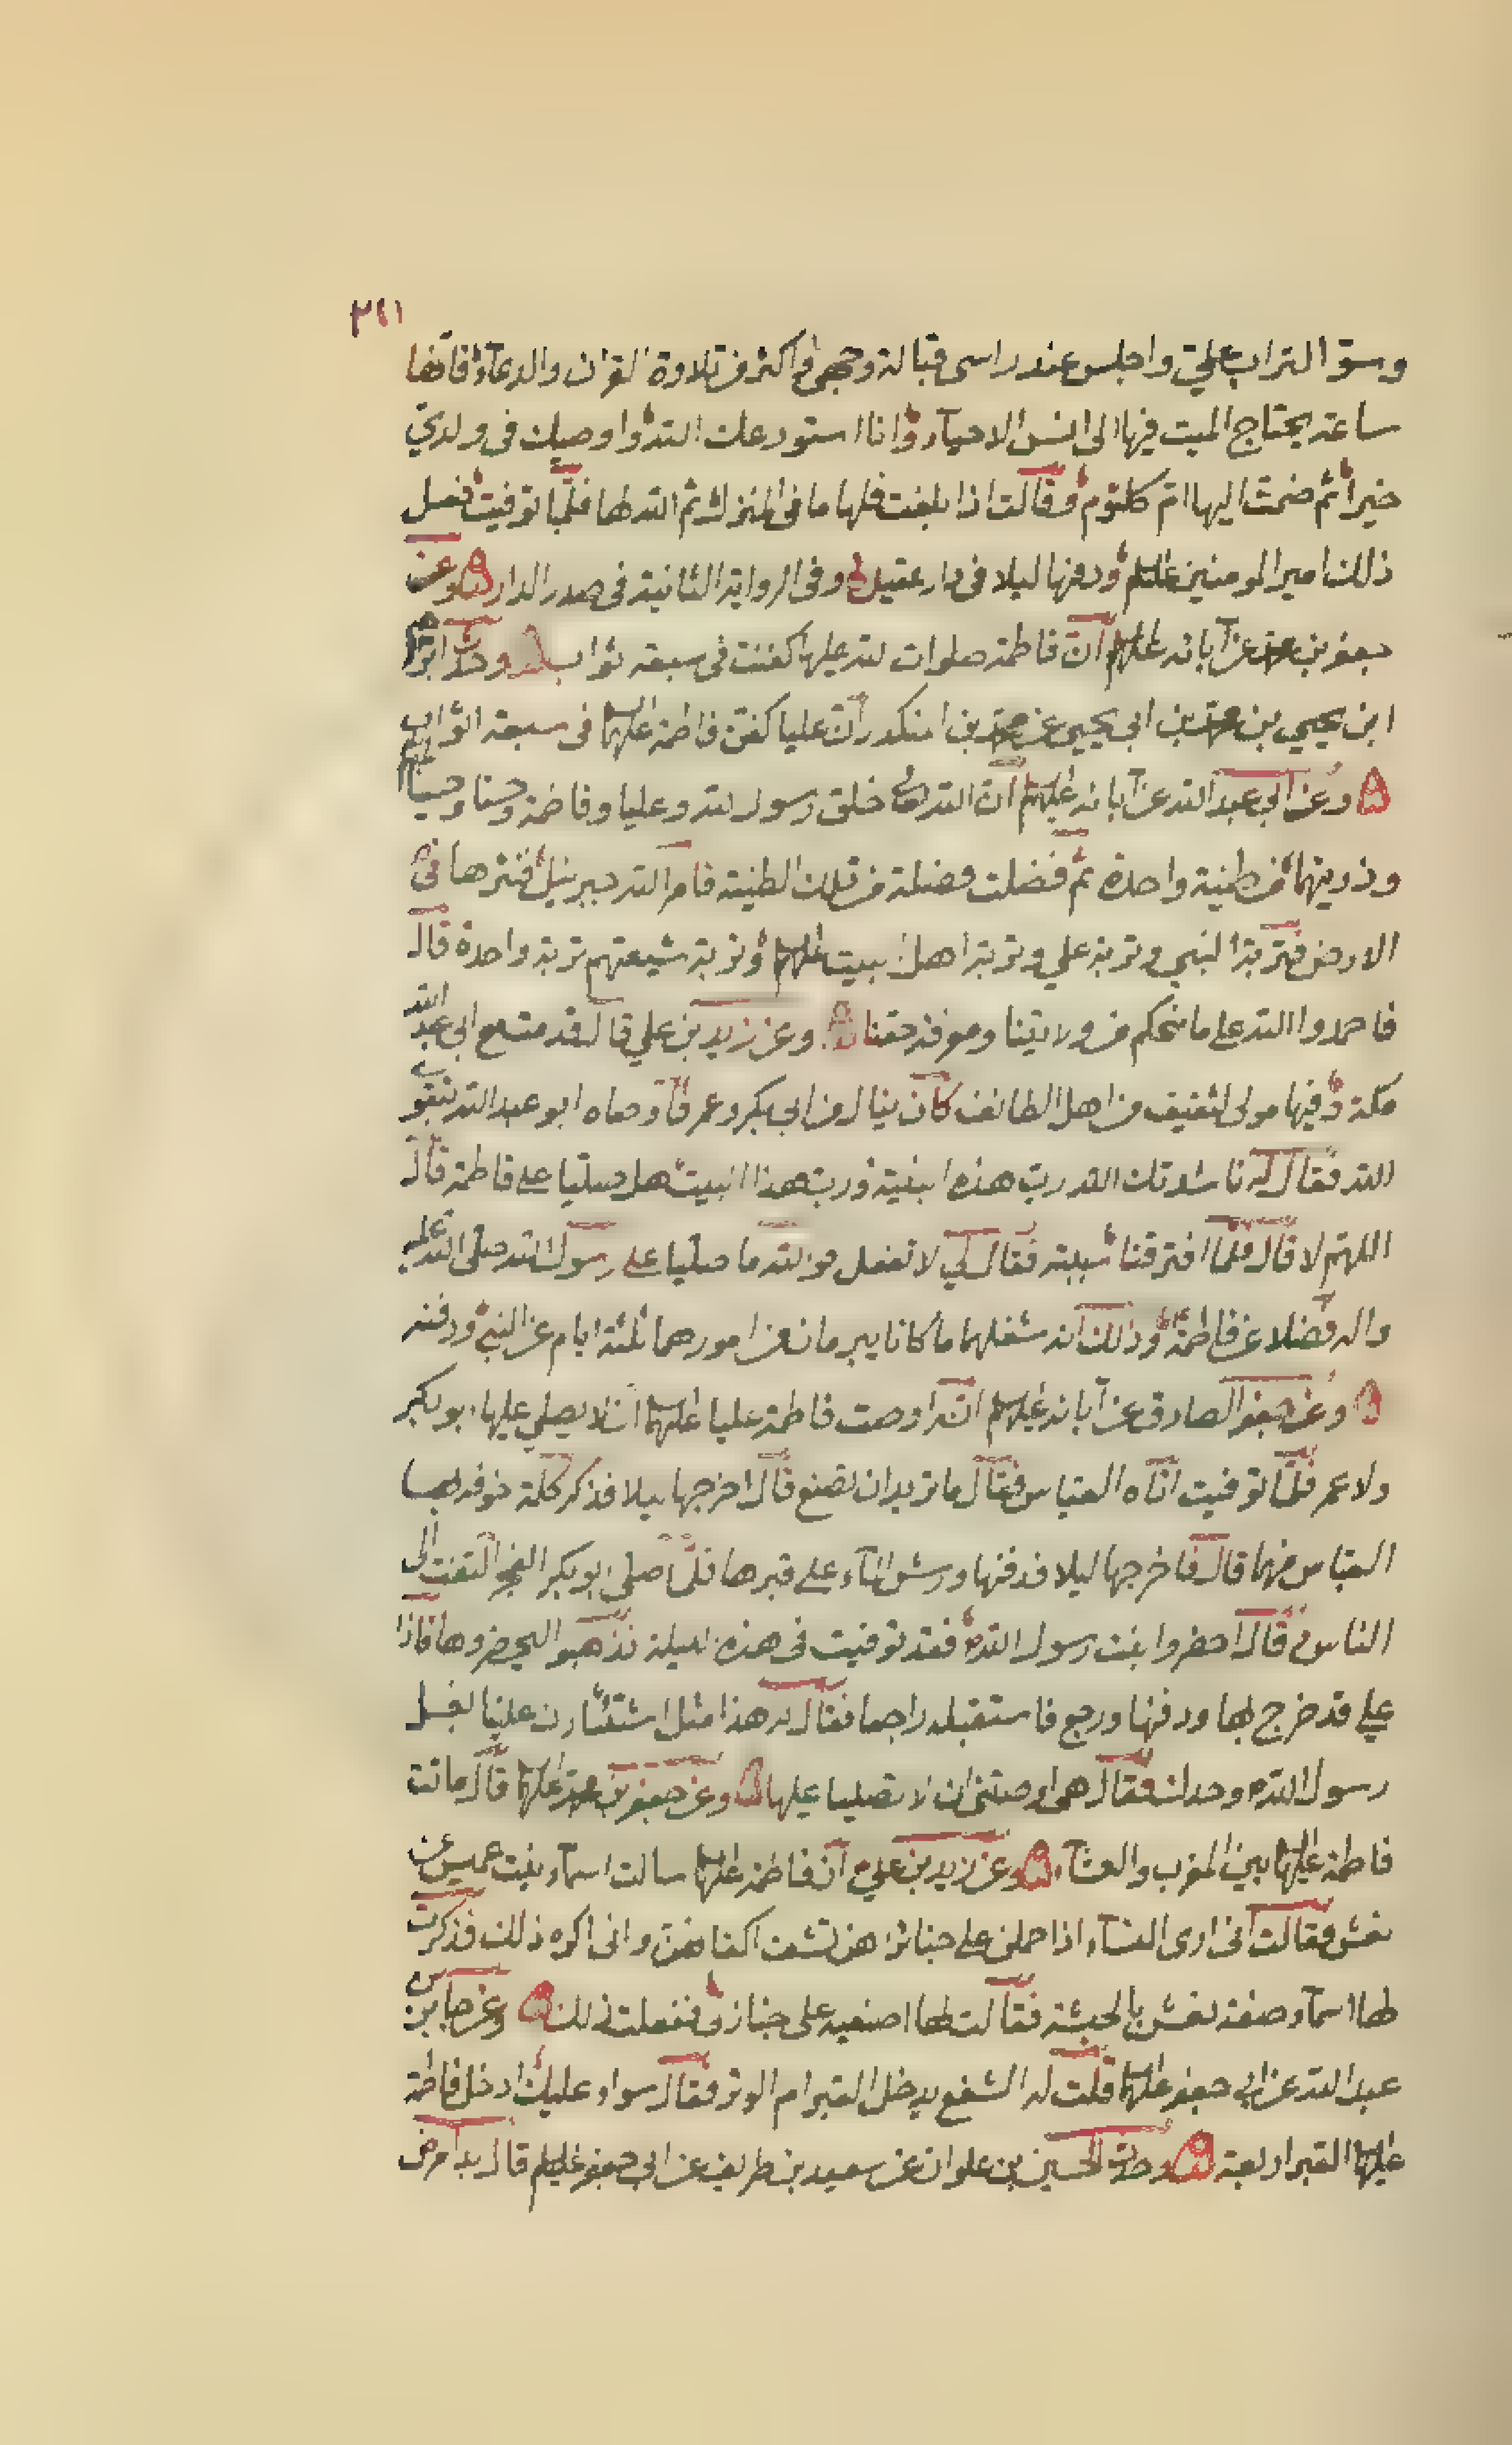 ٣٤١
وسوّ التراب عليّ واجلس عند راسي قبالة وجهي واكثر من تلاوة القرآن والدعآء فانّها
ساعة يحتاج الميت فيها الى انس الاحيآء وانا استودعك الله واوصيك في ولديّ
خيرا ثم ضمت اليها امّ كلثوم وقالت اذا بلغت فلها ما في المنزل ثم الله لها فلمّا توفيت فعل
ذلك امير المومنين عليلم ودفنها ليلا في دار عقيل وفي الرواية الثانية في صدر الدار وعن
جعفر بن محمد عن آبائه عليهم انّ فاطمة صلوات لله عليها كفنت في سبعة ثواب وحدّث ابراهيم
ابن يحيي بن محمد بن ابي يحيى عن محمد بن المنكدر انّ عليا كفّن فاطمة عليها في سبعة اثواب
وعن ابي عبد الله عن آبائه عليهم انّ الله تعالى خلق رسول لله وعليا وفاطمة وحسنا وحسينا عليهم
وذريتهما من طينة واحدة ثم فضلت فضلة من تلك الطينة فامر الله جبرئيل فنثرها في
الارض فتربة النبي وتربة علي وتربة اهل بيت عليهم وتربة شيعتهم تربة واحدة قال
فاحمدوا الله على ما منحكم من ولايتنا ومعرفة حقنا وعن زيد بن علي قال قدمت مع ابي عبد الله
مكة وفيها مولى لثقيف من اهل الطائف كان ينال من ابي بكر وعمر فاوصاه ابو عبد الله بتقوى
الله فقال له ناشدتك الله ربّ هذه البنية وربّ هذا البيت هل صلّيا على فاطمة قال
اللهمّ لا قال فلما افترقنا سببته فقال لي لا تفعل فوالله ما صليا على رسول الله صلى الله عليه
واله فضلا عن فاطمة وذلك انه شغلهما ما كانا يبرمان من امورهما ثلثة ايام عن النبي ودفنه
وعن جعفر الصادق عن آبائه عليهم انه اوصت فاطمة عليا عليهما ان لا يصلي عليها ابو بكر
ولا عمر فلمّا توفيت اتاه العباس فقال ما تريد ان تصنع قال اخرجها ليلا فذكر كلمة خوفه بها
العباس منهما قال فاخرجها ليلا فدفنها ورش المآء على قبرها فلمّا صلى ابو بكر الفجر التفت الى
الناس فقال احضروا بنت رسول الله فقد توفيت في هذه الليلة فذهبوا ليحضروها فاذا
علي قد خرج بها ودفنها ورجع فاستقبله راجعا فقال له هذا مثل استئثارك علينا بغسل
رسول الله وحدك فقال هي اوصتني ان لا تصليا عليها وعن جعفر بن محمد عليهما قال ماتت
فاطمة عليها بين المغرب والعشآء وعن زيد بن علي انّ فاطمة عليها سالت اسمآء بنت عميس عن
نعش فقالت اني ارى النسآء اذا حملن على جنائزهن تشف اكفانهن واني اكره ذلك فذكرت
لها اسمآء صفة نعش بالحبشة فقالت لها اصنعيه على جنازتي ففعلت ذلك وعن جابر بن
عبد الله عن ابي جعفر عليهما قلت له الشفع يدخل القبر ام الوتر فقال سواء عليك ادخل فاطمة
عليها القبر اربعة وحدث الحسين بن علوان عن سعيد بن طريف عن ابي جعفر عليلم قال بدأ مرض